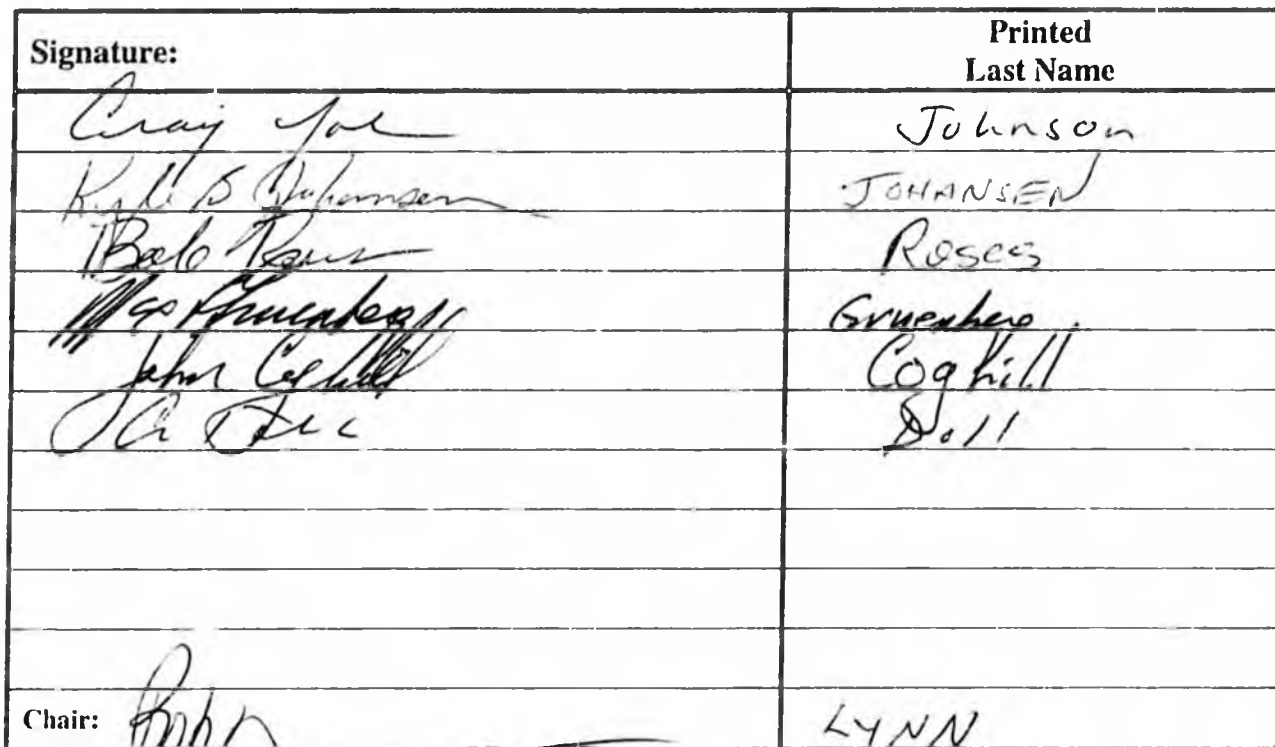 Signature: Printed Last Name
Craig Johnson
Kyle B Johansen JOHANSEN
Bob Roses
Max Gruenberg Gruenberg
John Coghill Coghill
Doll Doll
Chair: LYNN